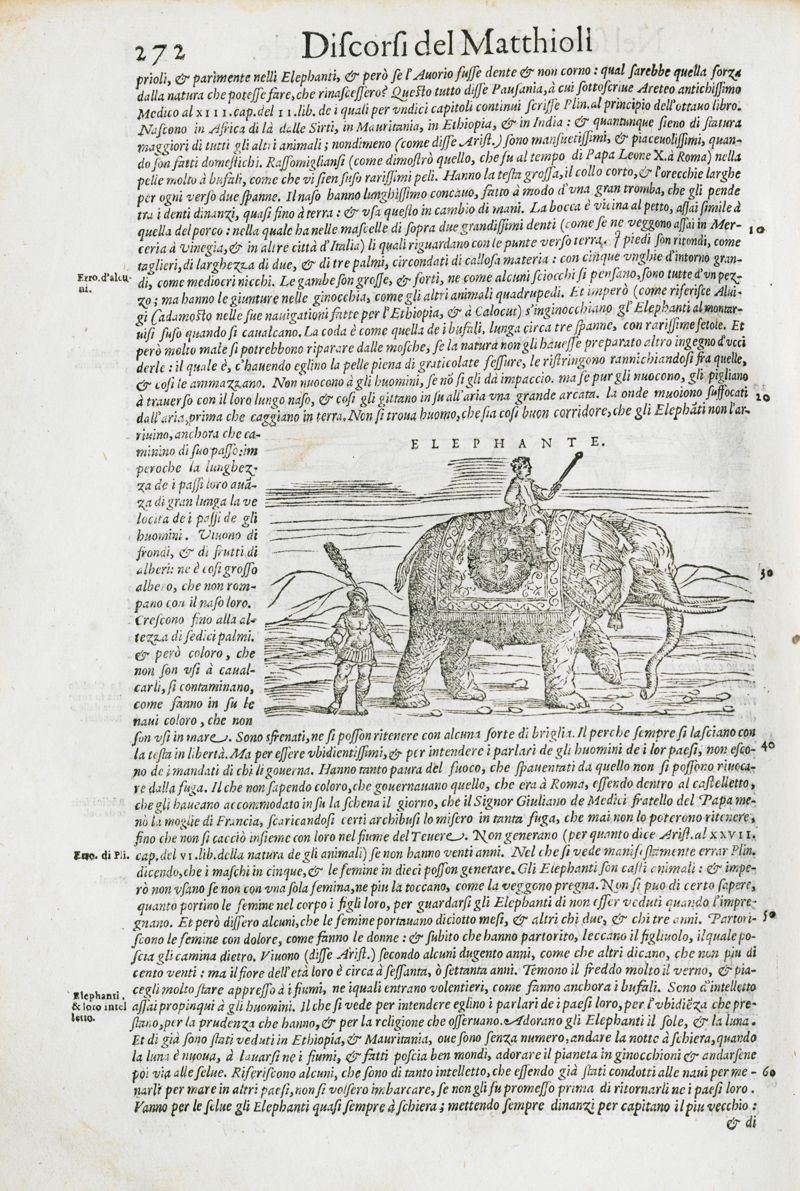 272 Diſcorſi del Matthioli
prioli, & parimente nelli Elephanti, & però ſe l'Auorio fuſſe dente & non corno: qual ſarebbe quella forza
dalla natura che poteſſe fare, che rinaſceſſero? Queſto tutto diſſe Pauſania, à cui ſottoſcriue Areteo antichiſſimo
Medico al XIII. cap. del II. lib. de i quali per vndici capitoli continui ſcriſſe Plin. al principio dell'ottauo libro.
Naſcono in Africa di là dalle Sirti, in Mauritania, in Ethiopia, & in India: & quantunque ſieno di ſtatura
maggiori di tutti gli altri animali; nondimeno (come diſſe Ariſt.) ſono manſuetiſſimi, & piaceuoliſſimi, quan-
do ſon fatti domeſtichi. Raſſomiglianſi (come dimoſtrò quello, che fu al tempo di Papa Leone X. à Roma) nella
pelle molto à bufali, come che vi ſien ſuſo rariſſimi peli. Hanno la teſta groſſa, il collo corto, & l'orecchie larghe
per ogni verſo due ſpanne. Il naſo hanno lunghiſſimo concauo, fatto à modo d'vna gran tromba, che gli pende
tra i denti dinanzi, quaſi fino à terra: & vſa queſto in cambio di mani. La bocca è vicina al petto, aſſai ſimile à
quella del porco: nella quale ha nelle maſcelle di ſopra due grandiſſimi denti (come ſe ne veggono aſſai in Mer- 10
ceria à Vinegia, & in altre città d'Italia) li quali riguardano con le punte verſo terra. I piedi ſon ritondi, come
taglieri, di larghezza di due, & di tre palmi, circondati di calloſa materia: con cinque vnghie d'intorno gran-
Erro. d'alcu- di, come mediocri nicchi. Le gambe ſon groſſe, & forti, ne come alcuni ſciocchi ſi penſano, ſono tutte d'vn pez-
ni. zo; ma hanno le giunture nelle ginocchia, come gli altri animali quadrupedi. Et imperò (come riferiſce Alui-
gi Cadamoſto nelle ſue nauigationi fatte per l'Ethiopia, & à Calocut) s'inginocchiano gl'Elephanti al montar-
uiſi ſuſo quando ſi caualcano. La coda è come quella de i bufali, lunga circa tre ſpanne, con rariſſime ſetole. Et
però molto male ſi potrebbono riparare dalle moſche, ſe la natura non gli haueſſe preparato altro ingegno d'vcci
derle: il quale è, c'hauendo eglino la pelle piena di graticolate feſſure, le riſtringono rannichiandoſi fra quelle,
& coſi le ammazzano. Non nuocono à gli huomini, ſe nõ ſi gli dà impaccio. ma ſe pur gli nuocono, gli pigliano
à trauerſo con il loro lungo naſo, & coſi gli gittano in ſu all'aria vna grande arcata. la onde muoiono ſuffocati 20
dall'aria, prima che caggiano in terra. Non ſi troua huomo, che ſia coſi buon corridore, che gli Elephãti non l'ar-
riuino, anchora che ca-
minino di ſuo paſſo: im
peroche la lunghez-
za de i paſſi loro auã-
za di gran lunga la ve
locita de i paſſi de gli
huomini. Viuono di
frondi, & di frutti di
alberi: ne è coſi groſſo
albero, che non rom-
pano con il naſo loro.
Creſcono fino alla al-
tezza di ſedici palmi.
& però coloro, che
non ſon vſi à caual-
carli, ſi contaminano,
come fanno in ſu le
naui coloro, che non
ELEPHANTE.
30
ſon vſi in mare. Sono sfrenati, ne ſi poſſon ritenere con alcuna ſorte di briglia. Il perche ſempre ſi laſciano con
la teſta in libertà. Ma per eſſere vbidientiſſimi, & per intendere i parlari de gli huomini de i lor paeſi, non eſco- 40
no de i mandati di chi li gouerna. Hanno tanto paura del fuoco, che ſpauentati da quello non ſi poſſono riuoca-
re dalla fuga. Il che non ſapendo coloro, che gouernauano quello, che era à Roma, eſſendo dentro al caſtelletto,
che gli haueano accommodato in ſu la ſchena il giorno, che il Signor Giuliano de Medici fratello del Papa me-
nò la moglie di Francia, ſcaricandoſi certi archibuſi lo miſero in tanta fuga, che mai non lo poterono ritenere,
fino che non ſi cacciò inſieme con loro nel fiume del Teuere. Non generano (per quanto dice Ariſt. al XXVII.
Erro. di Pli. cap. del VI. lib. della natura de gli animali) ſe non hanno venti anni. Nel che ſi vede manifeſtamente errar Plin.
dicendo, che i maſchi in cinque, & le femine in dieci poſſon generare. Gli Elephanti ſon caſti animali: & impe-
rò non vſano ſe non con vna ſola femina, ne piu la toccano, come la veggono pregna. Non ſi puo di certo ſapere,
quanto portino le femine nel corpo i figli loro, per guardarſi gli Elephanti di non eſſer veduti quando l'impre-
gnano. Et però diſſero alcuni, che le femine portauano diciotto meſi, & altri chi due, & chi tre anni. Partori- 50
ſcono le femine con dolore, come fanno le donne: & ſubito che hanno partorito, leccano il figliuolo, il quale po-
ſcia gli camina dietro. Viuono (diſſe Ariſt.) ſecondo alcuni dugento anni, come che altri dicano, che non piu di
cento venti: ma il fiore dell'età loro è circa à ſeſſanta, ò ſettanta anni. Temono il freddo molto il verno, & pia-
cegli molto ſtare appreſſo à i fiumi, ne i quali entrano volentieri, come fanno anchora i bufali. Sono d'intelletto
Elephanti, & loro intelletto. aſſai propinqui à gli huomini. Il che ſi vede per intendere eglino i parlari de i paeſi loro, per l'vbidiẽza che pre-
ſtano, per la prudenza che hanno, & per la religione che oſſeruano. Adorano gli Elephanti il ſole, & la luna.
Et di già ſono ſtati veduti in Ethiopia, & Mauritania, oue ſono ſenza numero, andare la notte à ſchiera, quando
la luna è nuoua, à lauarſi ne i fiumi, & fatti poſcia ben mondi, adorare il pianeta in ginocchioni & andarſene
poi via alle ſelue. Riferiſcono alcuni, che ſono di tanto intelletto, che eſſendo già ſtati condotti alle naui per me- 60
narli per mare in altri paeſi, non ſi volſero imbarcare, ſe non gli fu promeſſo prima di ritornarli ne i paeſi loro.
Vanno per le ſelue gli Elephanti quaſi ſempre à ſchiera; mettendo ſempre dinanzi per capitano il piu vecchio:
& di